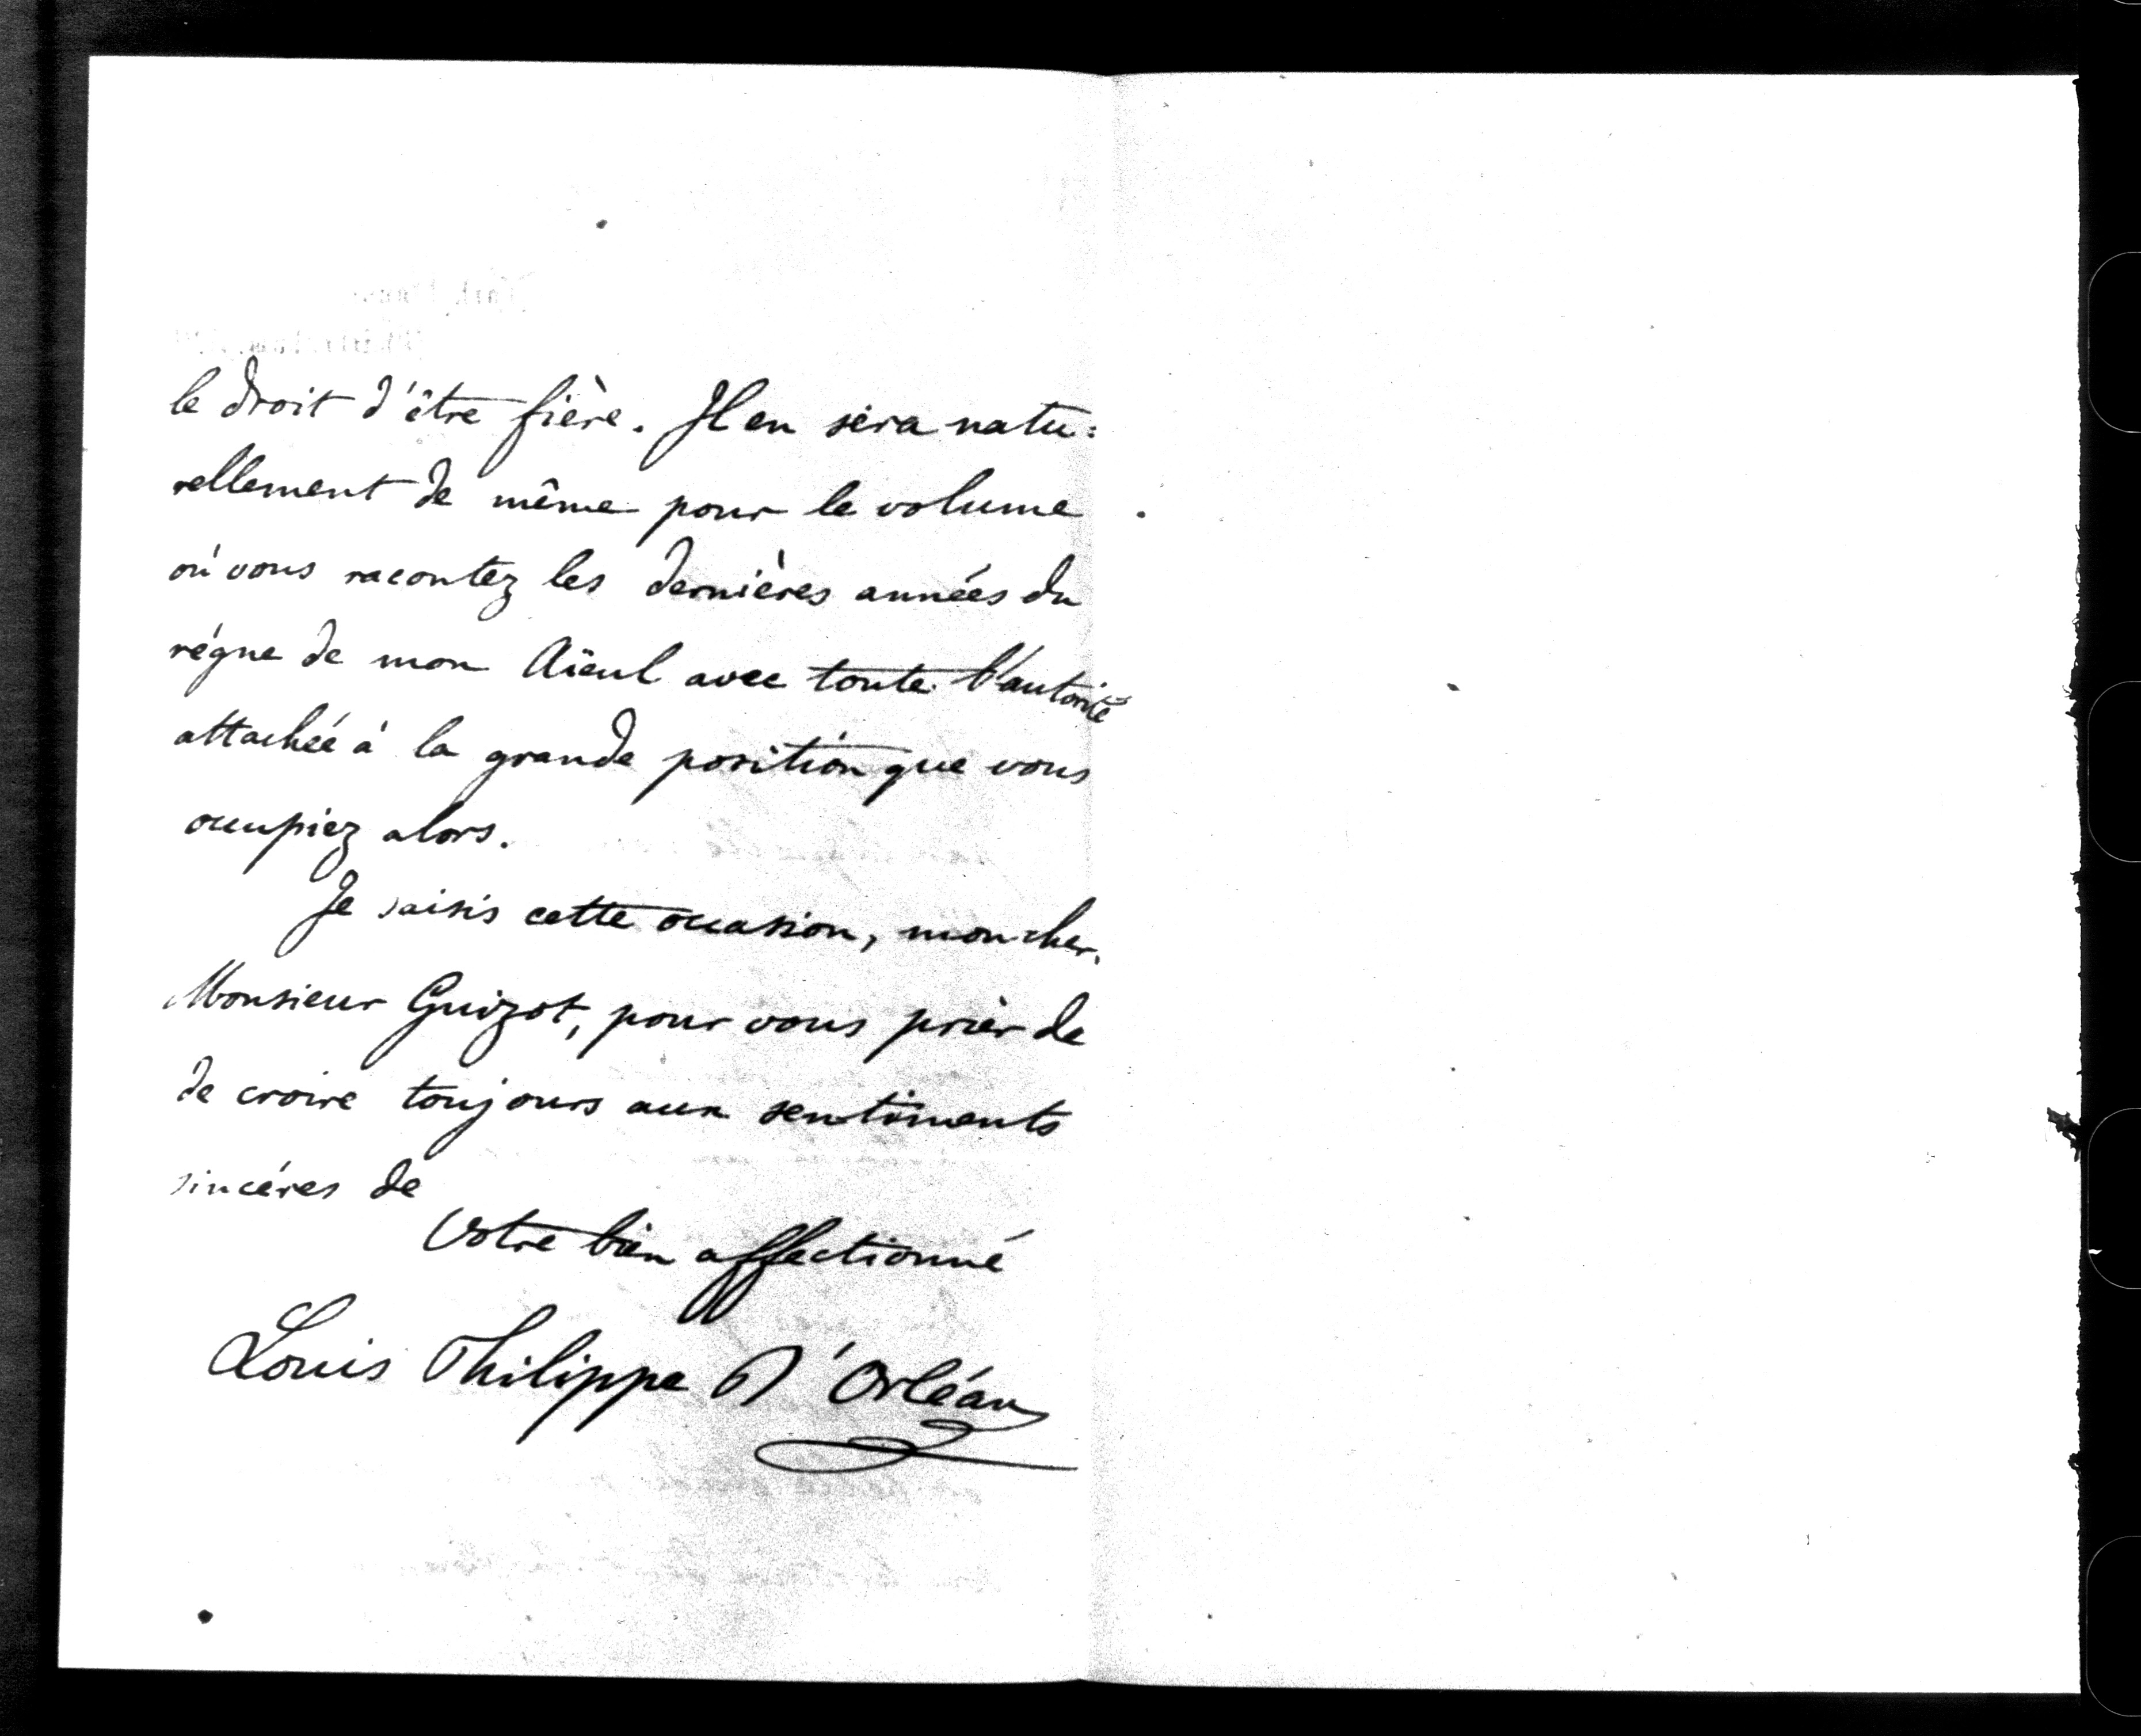 le droit d'être fière. Il en sera natu:
rellement de même pour le volume
où vous racontez les dernières années du
règne de mon Aïeul avec toute l'autorité
attachée à la grande position que vous
occupiez alors.
Je saisis cette occasion, mon cher
Monsieur Guizot, pour vous prier de
de croire toujours aux sentiments
sincères de
Votre bien affectionné
Louis Philippe D'Orléans